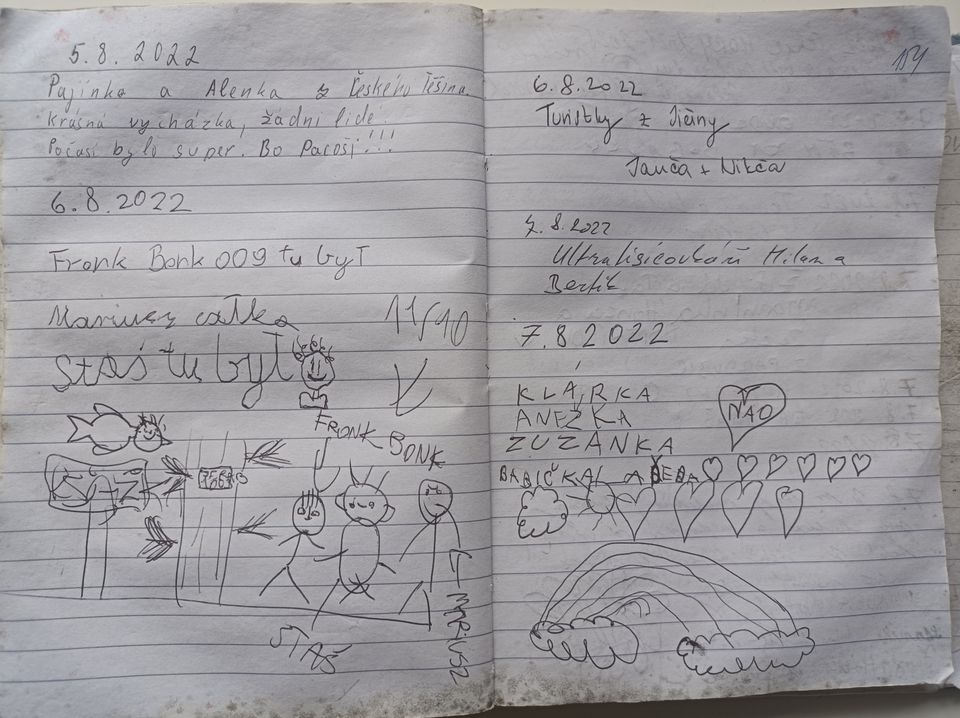 5.8.2022
Pajinka a Alenka z Českého Těšína
krásná vycházka, žádní lidé.
Počasí bylo super. Bo Pacoši!!!
6.8.2022
Fronk Bonk 009 tu był
Mariusz całka
11/10
Staś tu był
FRONK BONK
STAŚ
MARIUSZ
154
6.8.2022
Turistky z Jičíny
Janča + Nikča
7.8.2022
Ultralisicovkáři Milan a
Bertík
7.8 2022
KLÁRKA
ANEŽKA
ZUZANKA
BABIČKA A DĚDA